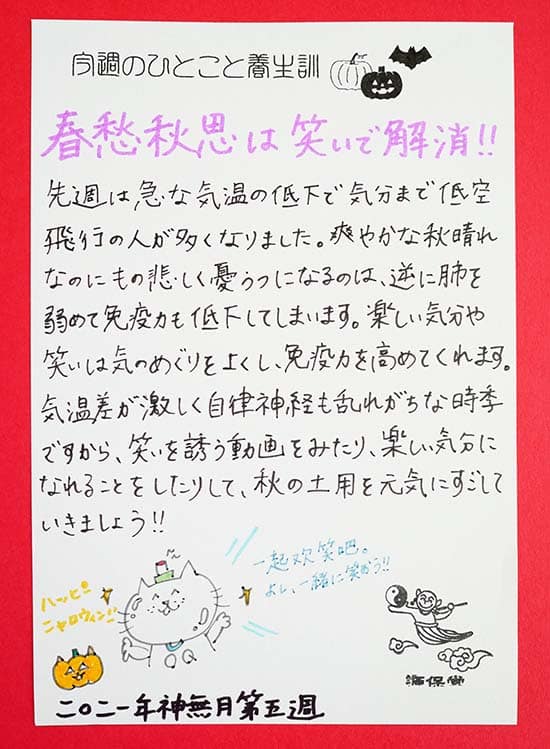 今週のひとこと養生訓
春愁秋思は笑いで解消!!
先週は急な気温の低下で気分まで低空
飛行の人が多くなりました。爽やかな秋晴れ
なのにもの悲しく憂うつになるのは、逆に肺を
弱めて免疫力も低下してしまいます。楽しい気分や
笑いは気のめぐりをよくし、免疫力を高めてくれます。
気温差が激しく自律神経も乱れがちな時季
ですから、笑いを誘う動画をみたり、楽しい気分に
なれることをしたりして、秋の土用を元気にすごして
いきましょう!!
一起欢笑吧。
よし、一緒に笑おう!!
ハッピー
ニャロウィン!!
二〇二一年神無月第五週